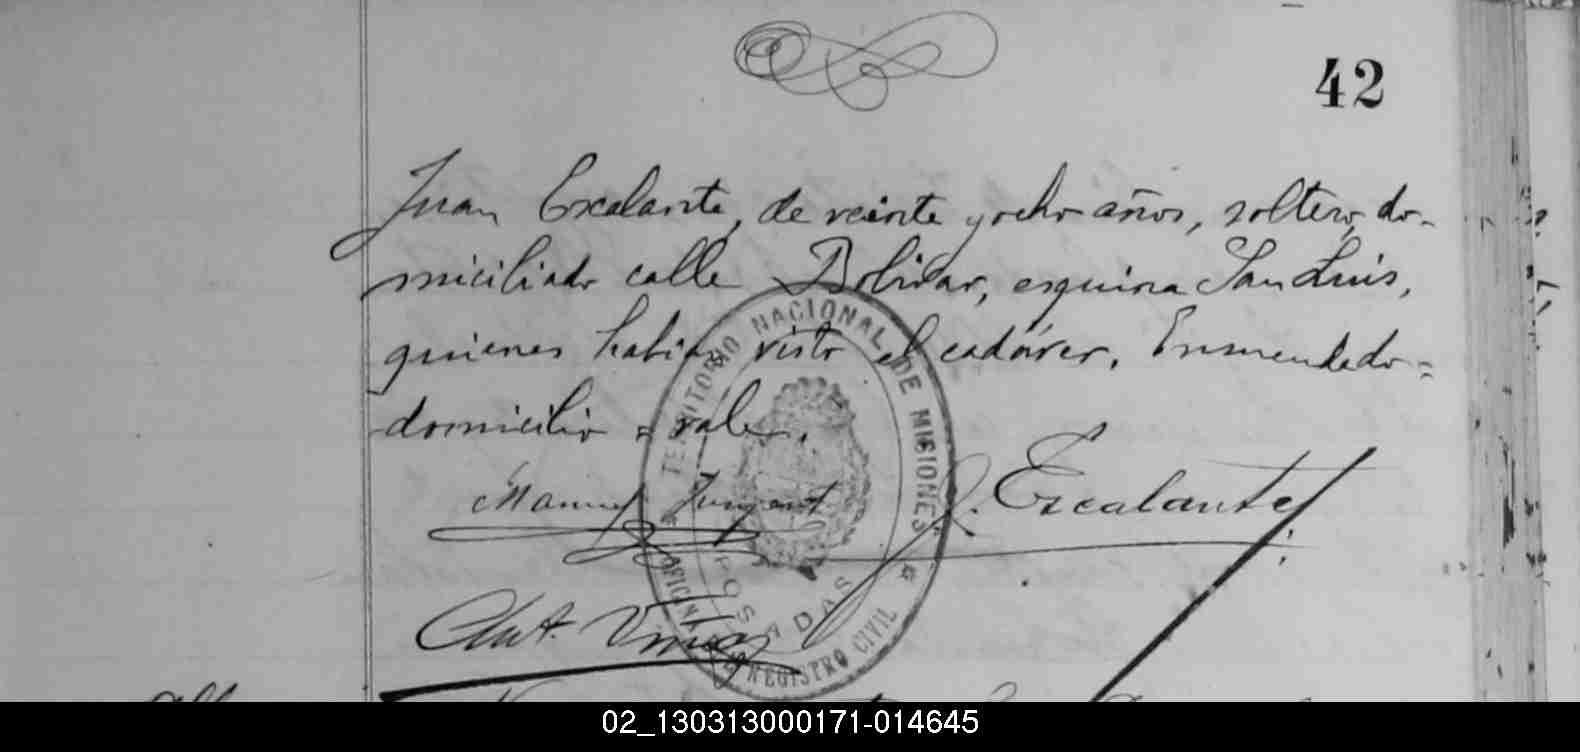 42
Juan Escalante, de veinte y ocho años, soltero, do-
miciliado calle Bolivar, esquina San Luis,
quienes habian visto el cadáver. Enmendado=
domicilio = vale.
TERRITORIO NACIONAL DE MISIONES
Manuel
J. Escalante
POSADAS
OFICINA REGISTRO CIVIL
Ant.
02_130313000171-014645